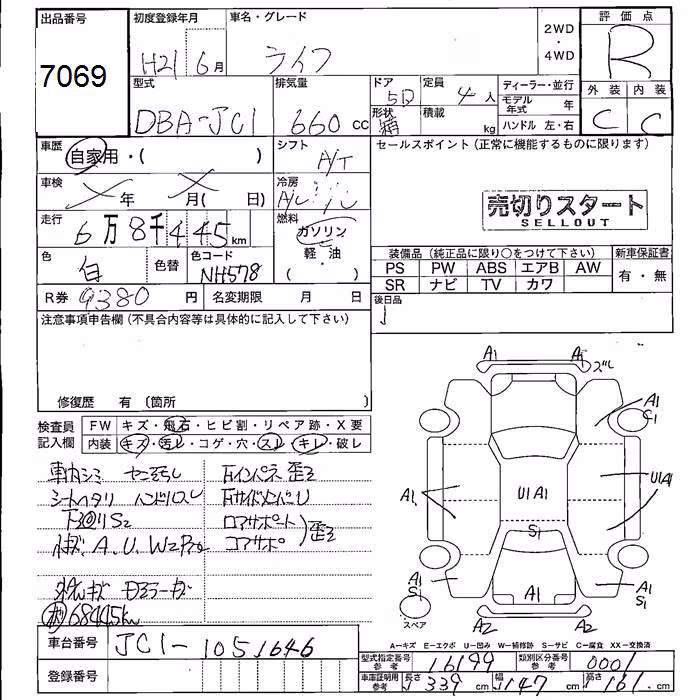 出品番号
7069
初度登録年月
H21 6月
車名・グレード
ライフ
2WD
・
4WD
評価点
R
外装 内装
C C
型式
DBA-JC1
排気量
660 cc
ドア
5D
形状
箱
定員
4人
積載
kg
ディーラー・並行
モデル年式 年
ハンドル 左・右
車歴
自家用・( )
シフト
A/T
車検
年 月( 日)
冷房
A/C
走行
6万8千445km
燃料
ガソリン
軽・油
( )
色
白
色替
色コード
NH578
R券 9380円
名変期限 月 日
セールスポイント(正常に機能するものに限ります)
売切りスタート
SELLOUT
装備品(純正品に限り○をつけて下さい)
新車保証書
PS PW ABS エアB AW
SR ナビ TV カワ
有・無
後日品
注意事項申告欄(不具合内容等は具体的に記入して下さい)
修復歴 有 (箇所 )
検査員記入欄
FW キズ・飛石・ヒビ割・リペア跡・X要
内装 キズ・汚レ・コゲ・穴・スレ・キレ・破レ
車内シミ
シートヘタリ ハンドルスレ
S2
A.U.W2
ドアミラーキズ
68445km
Rインパネ歪
RサイドメンバーU
ロアサポート
コアサポ
歪
A1 A1 ズレ
A1
C1
A1
U1 A1
U1A1
S1
A1
S1
A1
A1
S1
A2 A2
スペア
A―キズ E―エクボ U―凹み W―補修跡 S―サビ C―腐食 XX―交換済
車台番号
JC1-1051646
登録番号
型式指定番号
参考
16199
類別区分番号
参考
0001
車庫証明用
参考
長さ 339cm 幅 147cm 高さ 161cm